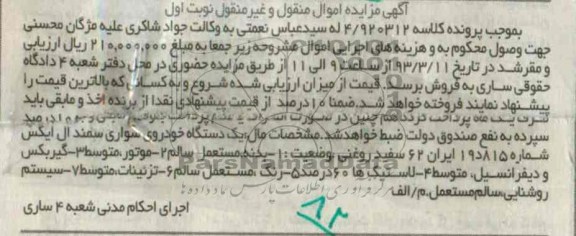 آگهی مزایده اموال منقول و غیر منقول نوبت اول
بموجب پرونده کلاسه ۴/۹۲۰۳۱۲ له سیدعباس نعمتی به وکالت جواد شاکری علیه مژگان محسنی
جهت وصول محکوم به و هزینه های اجرایی اموال مشروحه زیر جمعا به مبلغ ۲۱۰,۰۰۰,۰۰۰ ریال ارزیابی
و مقرشد در تاریخ ۹۳/۳/۱۱ از ساعت ۹ الی ۱۱ از طریق مزایده حضوری در محل دفتر شعبه ۴ دادگاه
حقوقی ساری به فروش برسد. قیمت از میزان ارزیابی شده شروع و به کسانی که بالاترین قیمت را
پیشنهاد نمایند فروخته خواهد شد.ضمنا ۱۰درصد از قیمت پیشنهادی نقدا از برنده اخذ و مابقی باید
ظرف یک ماه پرداخت گردد.هم چنین در صورت
سپرده به نفع صندوق دولت ضبط خواهدشد.مشخصات مال:یک دستگاه خودروی سواری سمند ال ایکس
شماره ۸۱۵د۱۹ ایران ۶۲ سفید روغنی وضعیت:۱-بدنه مستعمل سالم۲-موتور،متوسط۳-گیربکس
و دیفرانسیل، متوسط۴-لاستیک ها ۶۰درصد۵-رنگ ،مستعمل سالم۶-تزئینات،متوسط۷-سیستم
روشنایی،سالم مستعمل.م/الف
اجرای احکام مدنی شعبه ۴ ساری